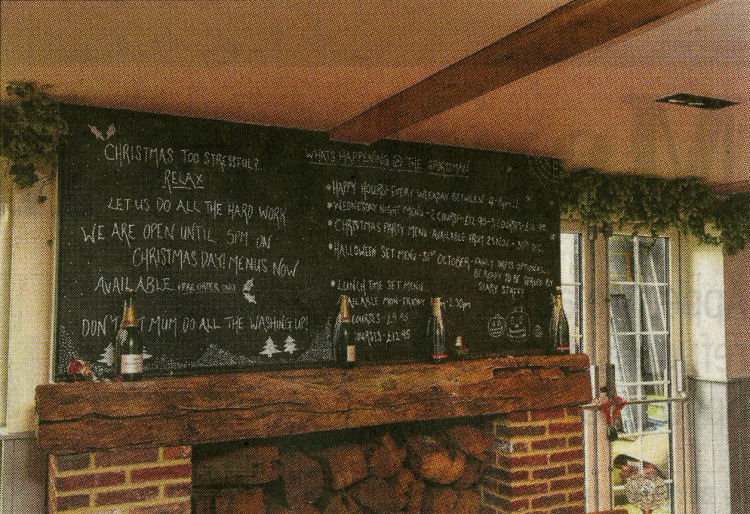 CHRISTMAS TOO STRESSFUL?..
RELAX
LET US DO ALL THE HARD WORK
WE ARE OPEN UNTIL 5PM ON
CHRISTMAS DAY! MENUS NOW
AVAILABLE (PRE ORDER ONLY)
DON'T MUM DO ALL THE WASHING UP!
WHATS HAPPENING @ THE
• HAPPY HOURS! EVERY WEEKDAY BETWEEN
• WEDNESDAY NIGHT MENU - 2 COURSE - £12.95 - 3 COURSE -
• CHRISTMAS PARTY MENU AVAILABLE FROM 25 NOV - 30TH DEC
• HALLOWEEN SET MENU - 30TH OCTOBER - FANCY DRESS OPTIONAL...
BE READY TO BE SERVED BY
SCARY STAFF!!
• LUNCH TIME SET MENU
AILABLE MON-FRIDAY -2.30pm
COURSES - £9.95
OURSES - £12.95